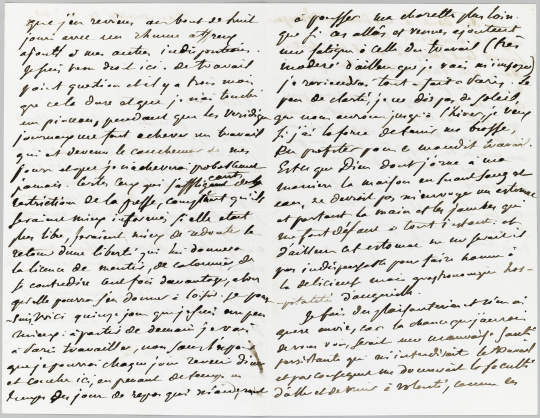 que j'en reviens au bout de huit
jours avec un rhume affreux
ajouté à mes autres indispositions.
Je suis venu droit ici. De travail
point question et il y a trois mois
que cela dure et que je n'ai touché
un pinceau, pendant que les
journaux me font achever un travail
qui est devenu le cauchemar de mes
jours et que je n'achèverai probablement
jamais. Certes ceux qui s'affligent de la
restriction de la presse, croyant qu'ils
seraient mieux informés si elle était
plus libre, devraient mieux redouter le
retour d'une liberté qui lui donnera
la licence de mentir, de calomnier, de
se contredire cent fois davantage, alors
qu'elle pourra s'en donner à loisir. Je
suis ici quinze jours que j'y suis un peu
mieux: à partir de demain je vais
à Paris travailler, non sans l'espoir
que je pourrai chaque jour revenir dîner
et coucher ici, en prenant de temps en
temps des jours de repos qui m'aideront
à pousser ma charette plus loin.
que si ces allées et venues ajoutent
une fatigue à celle du travail (très
modéré d'ailleurs que je vais m'imposer)
je reviendrai tout à fait à Paris. Le
peu de clarté, je ne dis pas de soleil,
que nous aurons jusqu'à l'hiver, je veux
si j'ai la force de tenir ma brosse,
en profiter pour ce maudit travail.
Est-ce que Dieu dont j'orne à ma
manière la maison en suant sang et
eau, ne devrait pas m'envoyer un estomac
et partant la main et les jambes qui
me font défaut à tout instant: et
d'ailleurs cet estomac ne me serait-il
pas indispensable pour faire honneur à
la délicieuse mais gastronomique hos-
pitalité d'Augerville.
Je fais des plaisanteries et n'en ai
guère envie, car la chance que j'aurais
de vous voir, serait une mauvaise santé
persistante qui m'interdirait le travail
et par conséquent me donnerait la faculté
d'aller et de venir à volonté, comme les